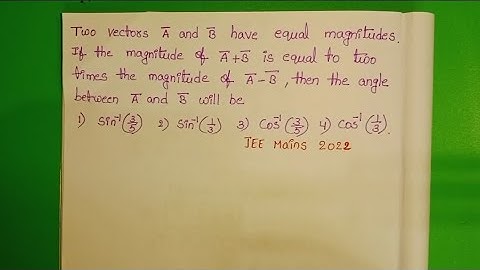 Two vectors A̅ and B̅ have equal magnitudes.
If the magnitude of A̅+B̅ is equal to two
times the magnitude of A̅-B̅, then the angle
between A̅ and B̅ will be
1) Sin⁻¹(3/5) 2) Sin⁻¹(1/3) 3) Cos⁻¹(3/5) 4) Cos⁻¹(1/3).
JEE Mains 2022